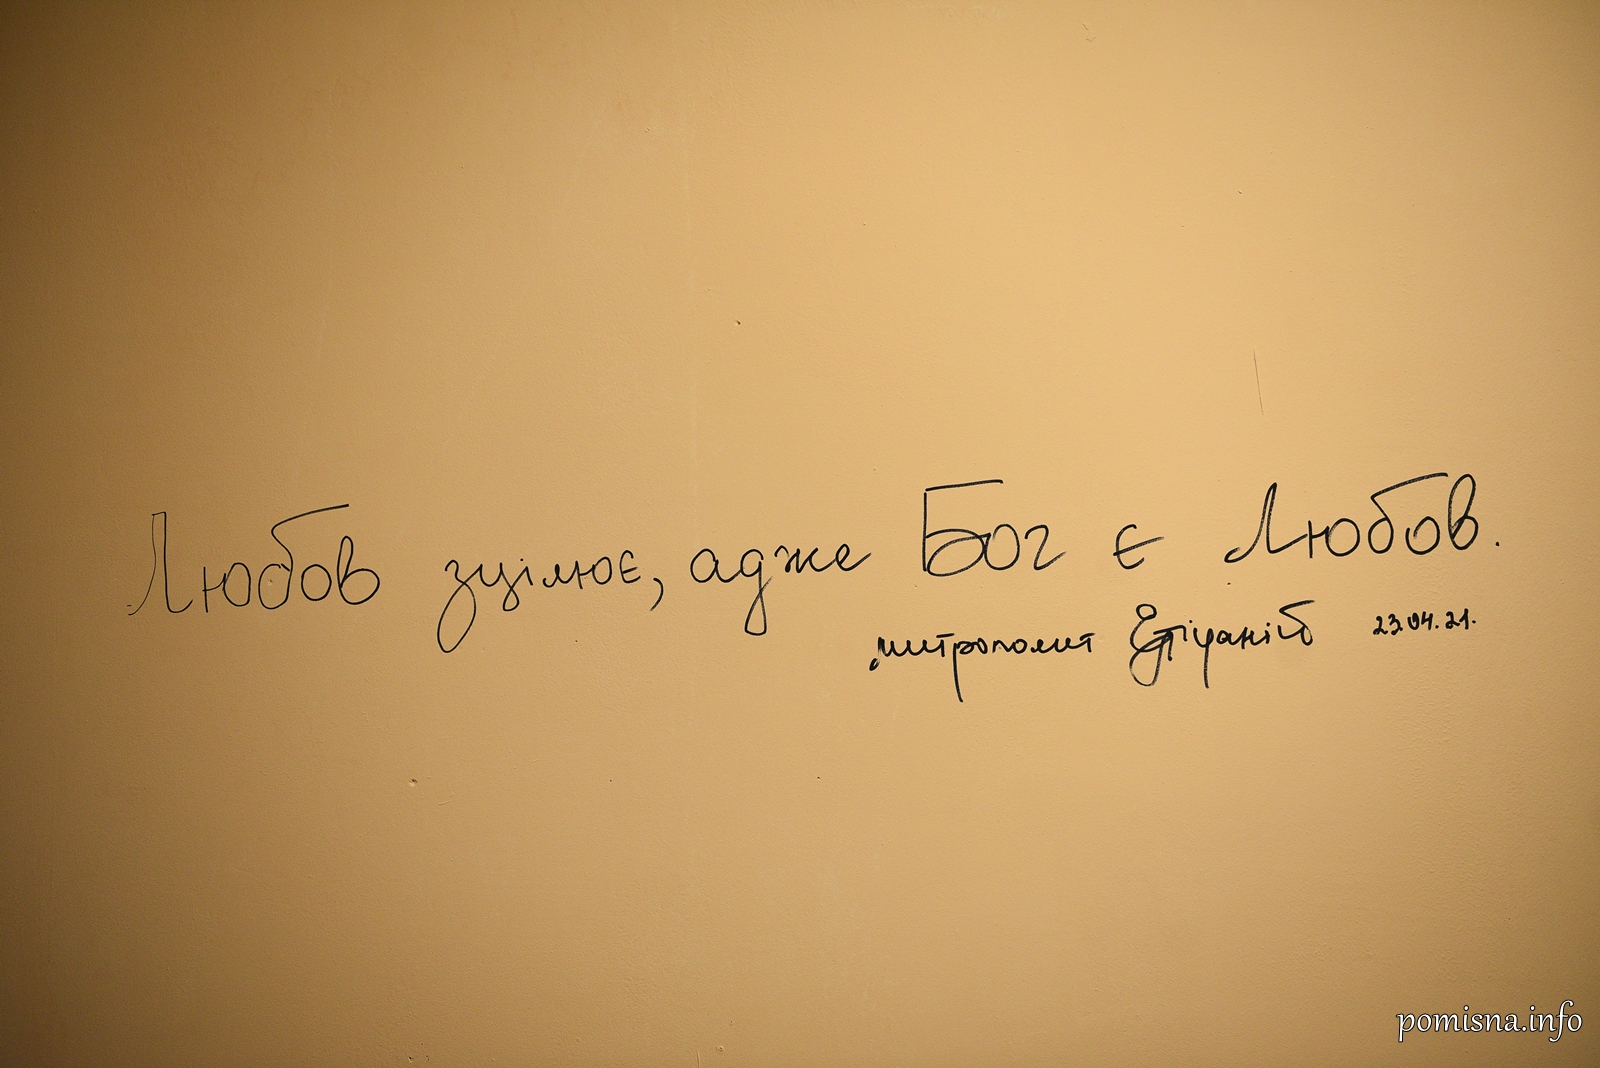 Любов зцілює, адже Бог є Любов.
митрополит Епіфаній 23.04.21.
pomisna.info